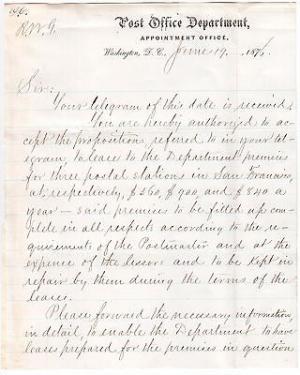 R.W.G.
Post Office Department,
APPOINTMENT OFFICE,
Washington, D. C., June 19, 1876.
Sir:
Your telegram of this date is received.
You are hereby authorized to ac-
cept the propositions referred to in your tel-
egram, to lease to the Department premises
for three postal stations in San Francisco,
at, respectively, $360, $900, and $840 a
year — said premises to be fitted up com-
plete in all respects according to the re-
quirements of the Postmaster and at the
expense of the lessors and to be kept in
repair by them during the terms of the
leases.
Please forward the necessary information
in detail, to enable the Department to have
leases prepared for the premises in question